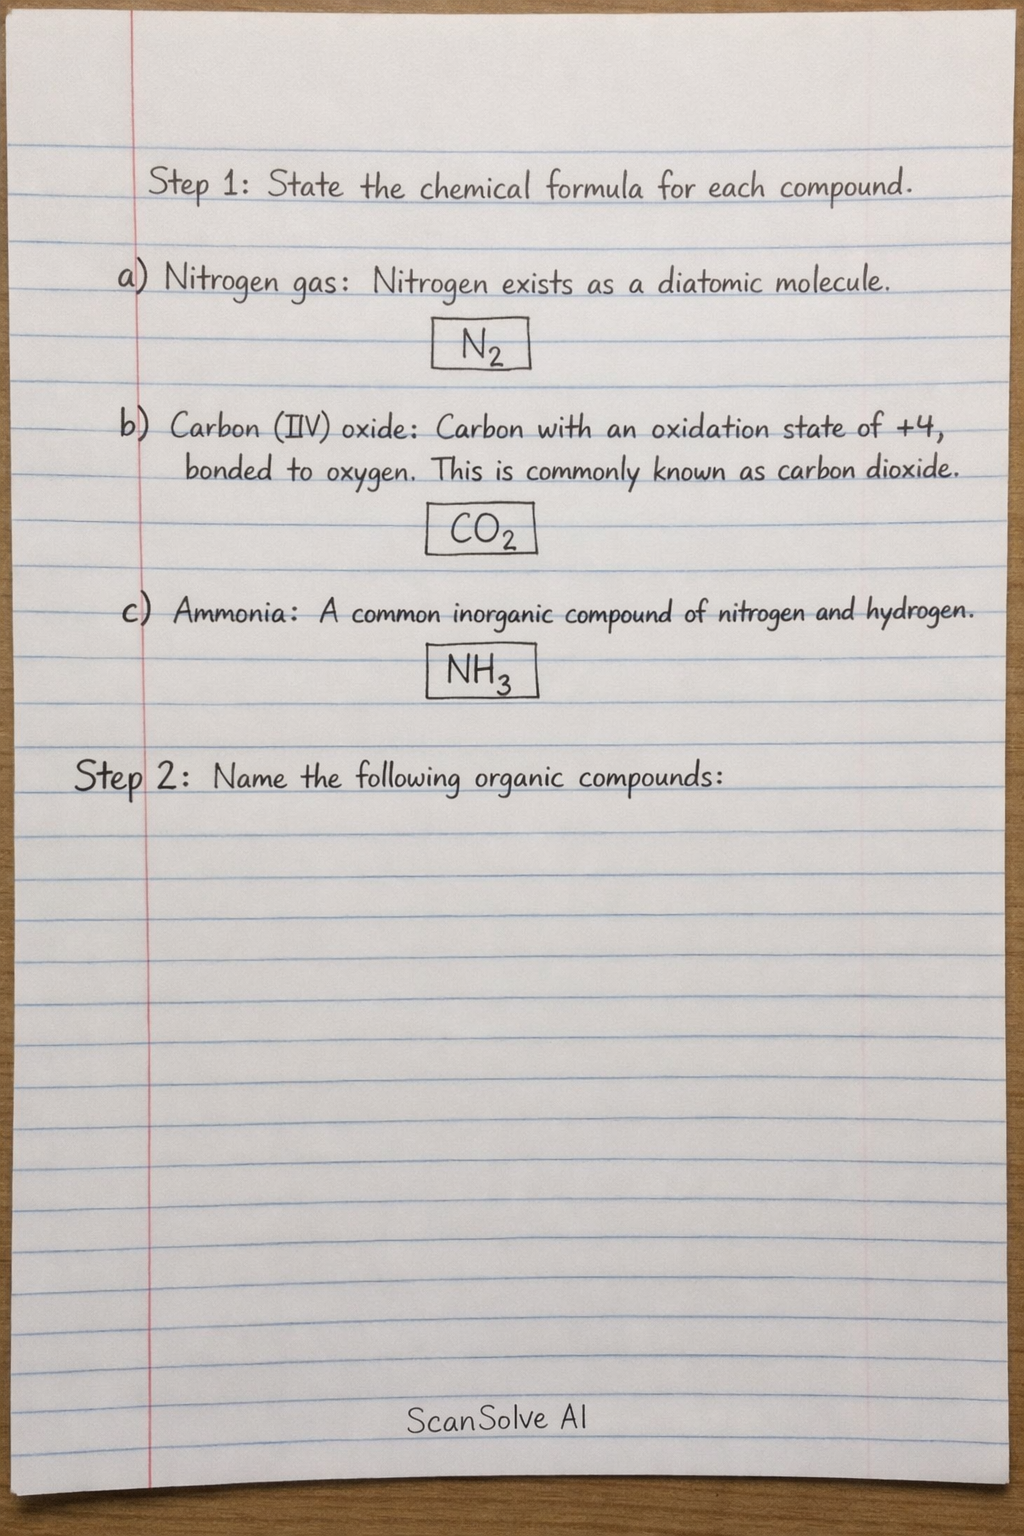 Step 1: State the chemical formula for each compound.
a) Nitrogen gas: Nitrogen exists as a diatomic molecule.
N₂
b) Carbon (IIV) oxide: Carbon with an oxidation state of +4,
bonded to oxygen. This is commonly known as carbon dioxide.
CO₂
c) Ammonia: A common inorganic compound of nitrogen and hydrogen.
NH₃
Step 2: Name the following organic compounds:
ScanSolve AI